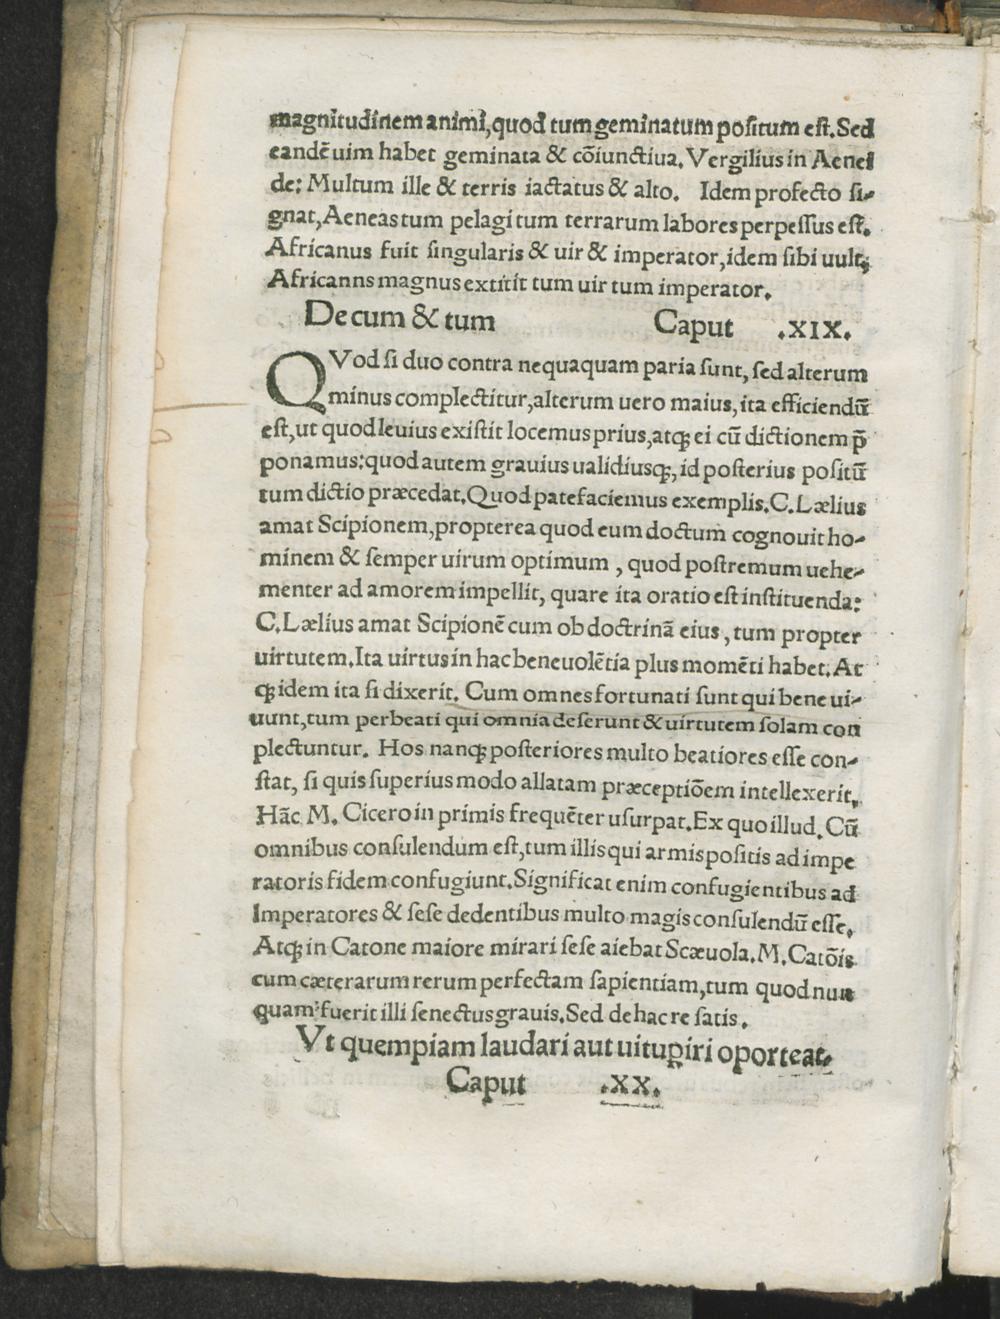 magnitudinem animi,quod tum geminatum positum est.Sed
eandē uim habet geminata & cōiunctiua.Vergilius in Aenei
de: Multum ille & terris iactatus & alto. Idem profecto si-
gnat,Aeneas tum pelagi tum terrarum labores perpessus est.
Africanus fuit singularis & uir & imperator,idem sibi uult;
Africanns magnus extitit tum uir tum imperator.
De cum & tum Caput .XIX.
QVod si duo contra nequaquam paria sunt, sed alterum
minus complectitur,alterum uero maius,ita efficiendū
est,ut quod leuius existit locemus prius,atqꝫ ei cū dictionem p̄
ponamus:quod autem grauius ualidiusqꝫ,id posterius positū
tum dictio præcedat.Quod patefaciemus exemplis.C.Lælius
amat Scipionem,propterea quod eum doctum cognouit ho-
minem & semper uirum optimum , quod postremum uehe-
menter ad amorem impellit, quare ita oratio est instituenda:
C.Lælius amat Scipionē cum ob doctrinā eius , tum propter
uirtutem.Ita uirtus in hac beneuolētia plus momēti habet.At
qꝫ idem ita si dixerit. Cum omnes fortunati sunt qui bene ui-
uunt,tum perbeati qui omnia deserunt & uirtutem solam con
plectuntur. Hos nanqꝫ posteriores multo beatiores esse con-
stat, si quis superius modo allatam præceptiōem intellexerit.
Hāc M. Cicero in primis frequēter usurpat.Ex quo illud.Cū
omnibus consulendum est,tum illis qui armis positis ad impe
ratoris fidem confugiunt.Significat enim confugientibus ad
Imperatores & sese dedentibus multo magis consulendū esse.
Atqꝫ in Catone maiore mirari sese aiebat Scæuola.M.Catōis
cum cæterarum rerum perfectam sapientiam,tum quod nun
quam fuerit illi senectus grauis.Sed de hac re satis.
Vt quempiam laudari aut uituꝑiri oporteat.
Caput .XX.